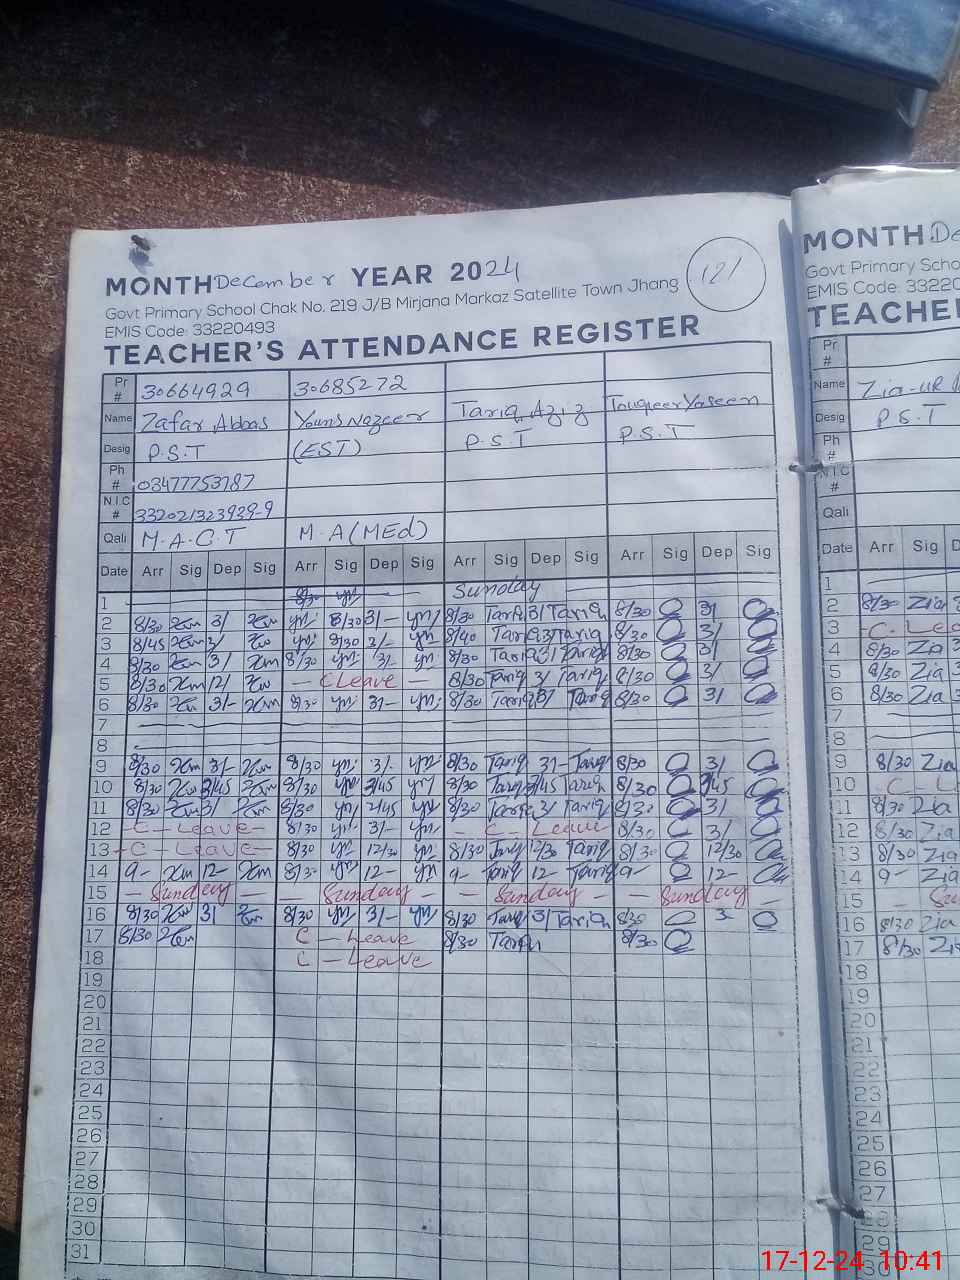 MONTH December YEAR 2024
121
Govt Primary School Chak No. 219 J/B Mirjana Markaz Satellite Town Jhang
EMIS Code: 33220493
TEACHER'S ATTENDANCE REGISTER
Pr # 30664929 30685272
Name Zafar Abbas Youns Nazeer Tariq Aziz Tauqeer Yaseen
Desig P.S.T (EST) P.S.T P.S.T
Ph # 03477753787
N.I.C # 332021323939-9
Qali M.A.C.T M.A (MEd)
Date Arr Sig Dep Sig Arr Sig Dep Sig Arr Sig Dep Sig Arr Sig Dep Sig
1 Sunday
2 8/30 3/ 8/30 3/- 8/30 Tariq 3/ Tariq 8/30 3/
3 8/45 3/ 8/30 3/- 8/40 Tariq 3/ Tariq 8/30 3/
4 8/30 3/ 8/30 3/- 8/30 Tariq 3/ Tariq 8/30 3/
5 8/30 12/ C Leave 8/30 Tariq 3/ Tariq 8/30 3/
6 8/30 3/- 8/30 3/- 8/30 Tariq 3/ Tariq 8/30 3/
7
8
9 8/30 3/- 8/30 3/- 8/30 Tariq 3/- Tariq 8/30 3/
10 8/30 2/45 8/30 2/45 8/30 Tariq 2/45 Tariq 8/30 2/45
11 8/30 3/ 8/30 2/45 8/30 Tariq 3/ Tariq 8/30 3/
12 - C - Leave - 8/30 3/- - C - Leave 8/30 3/
13 - C - Leave - 8/30 12/30 8/30 Tariq 12/30 Tariq 8/30 12/30
14 9- 12- 8/30 12- 9- Tariq 12- Tariq 9- 12-
15 - Sunday - Sunday - Sunday - Sunday -
16 8/30 3/ 8/30 3/- 8/30 Tariq 3/ Tariq 8/30 3
17 8/30 C - Leave 8/30 Tariq 8/30
18 C - Leave
19
20
21
22
23
24
25
26
27
28
29
30
31
MONTH De
Govt Primary Scho
EMIS Code: 3322
TEACHE
Pr #
Name Zia-ur
Desig P.S.T
Ph #
N.I.C #
Qali
Date Arr Sig D
1
2 8/30 Zia
3 - C - Lea
4 8/30 Zia 3
5 8/30 Zia 3
6 8/30 Zia 3
7
8
9 8/30 Zia
10 - C - L
11 8/30 Zia
12 8/30 Zia
13 8/30 Zia
14 9- Zia
15 - Su
16 8/30 Zia
17 8/30 Zia
18
19
20
21
22
23
24
25
26
27
28
29
30
17-12-24 10:41